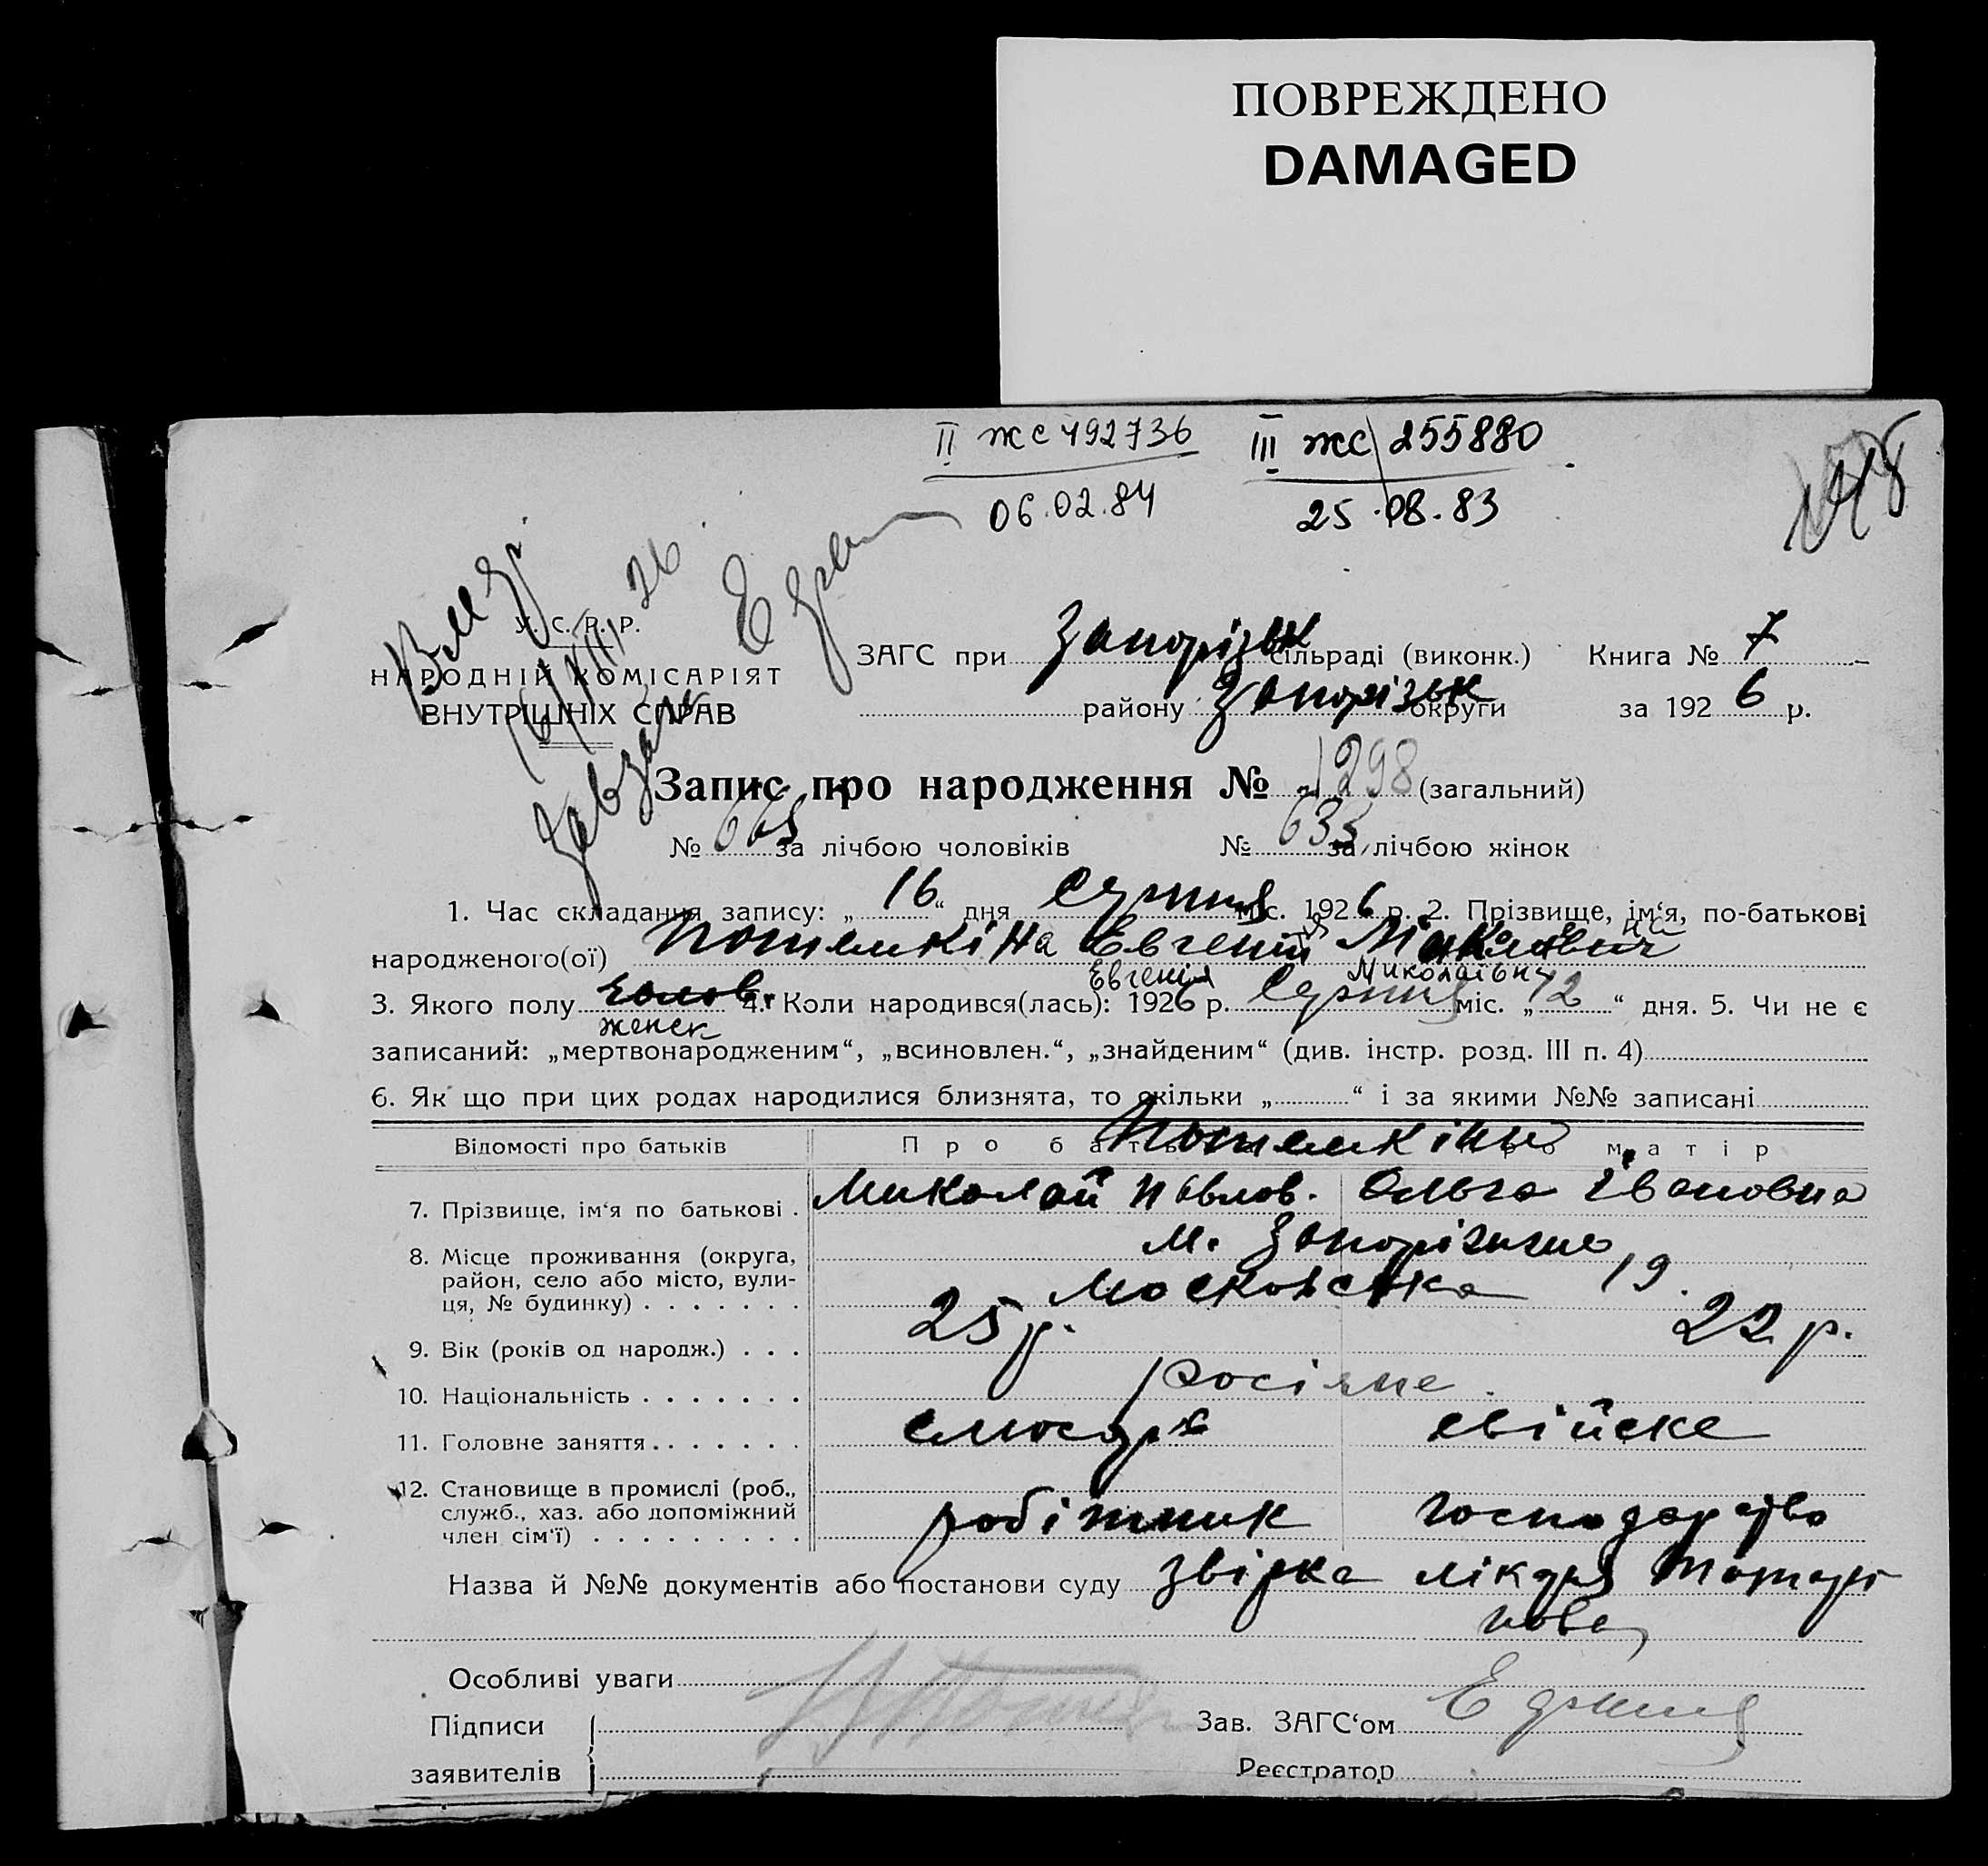 ПОВРЕЖДЕНО
DAMAGED
II ЖС 492736 III ЖС 255880
06.02.84 25.08.83
У. С. Р. Р.
НАРОДНІЙ КОМІСАРІЯТ
ВНУТРІШНІХ СПРАВ
ЗАГС при Запорізьк сільраді (виконк.) Книга № 7
району Запорізьк округи за 1926 р.
Запис про народження № 1298 (загальний)
№ 665 за лічбою чоловіків № 633 за лічбою жінок
1. Час складання запису: „16“ дня Серпня міс. 1926 р. 2. Прізвище, ім‘я, по-батькові
народженого(ої) Потемкіна Евгений
Евгенія Миколаївну
3. Якого полу чолов. 4. Коли народився(лась): 1926 р. Серпня міс. „12“ дня. 5. Чи не є
женск
записаний: „мертвонародженим“, „всиновлен.“, „знайденим“ (див. інстр. розд. III п. 4)
6. Як що при цих родах народилися близнята, то скільки „ “ і за якими №№ записані
Відомості про батьків Про батька Про матір
Потемкіны
7. Прізвище, ім‘я по батькові . Миколай Павлов. Ольга Івановна
8. Місце проживання (округа, м. Запоріжжє
район, село або місто, вули-
ця, № будинку) . . . . . . . Московська 19.
9. Вік (років од народж.) . . . 25 р. 22 р.
10. Національність . . . . . . . росіяне.
11. Головне заняття . . . . . . . слюсарь свійске
12. Становище в промислі (роб.,
служб., хаз. або допоміжний робітник господарство
член сім‘ї) . . . . . . . . .
Назва й №№ документів або постанови суду звірка лікаря Татари
нова
Особливі уваги
Підписи Зав. ЗАГС‘ом
заявителів Реєстратор